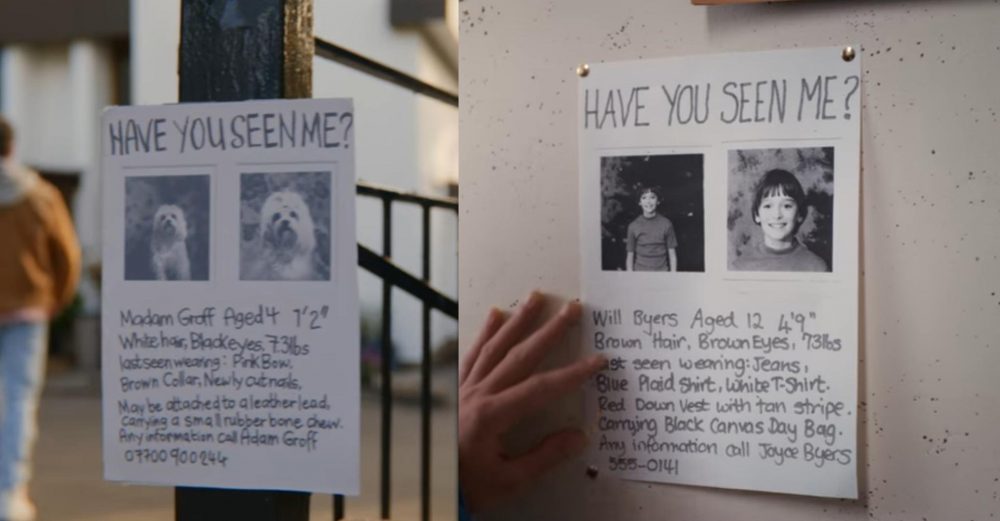 HAVE YOU SEEN ME?
Madam Groff Aged 4 1'2"
White hair, Black eyes, 7.3lbs
last seen wearing: Pink Bow,
Brown Collar, Newly cut nails.
May be attached to a leather lead,
carrying a small rubber bone chew.
Any information call Adam Groff
07700900244
HAVE YOU SEEN ME?
Will Byers Aged 12 4'9"
Brown Hair, Brown Eyes, 73lbs
last seen wearing: Jeans,
Blue Plaid Shirt, White T-Shirt.
Red Down Vest with tan stripe.
Carrying Black Canvas Day Bag.
Any information call Joyce Byers
555-0141